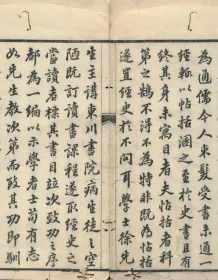 為通儒今人束髮受書未通一
經輒以帖括溷之至於史書且有
終其身未寓目者夫帖括者科
第之鵠不得不為特非既為帖括
遂置經史於不問耳學徐先
生主講東川書院病生徒之空
陋既訂讀書課程遂取經史之
當讀者標其目且次致功之序
都為一編以示學者士苟有志
如先生教次第而致其功即馴